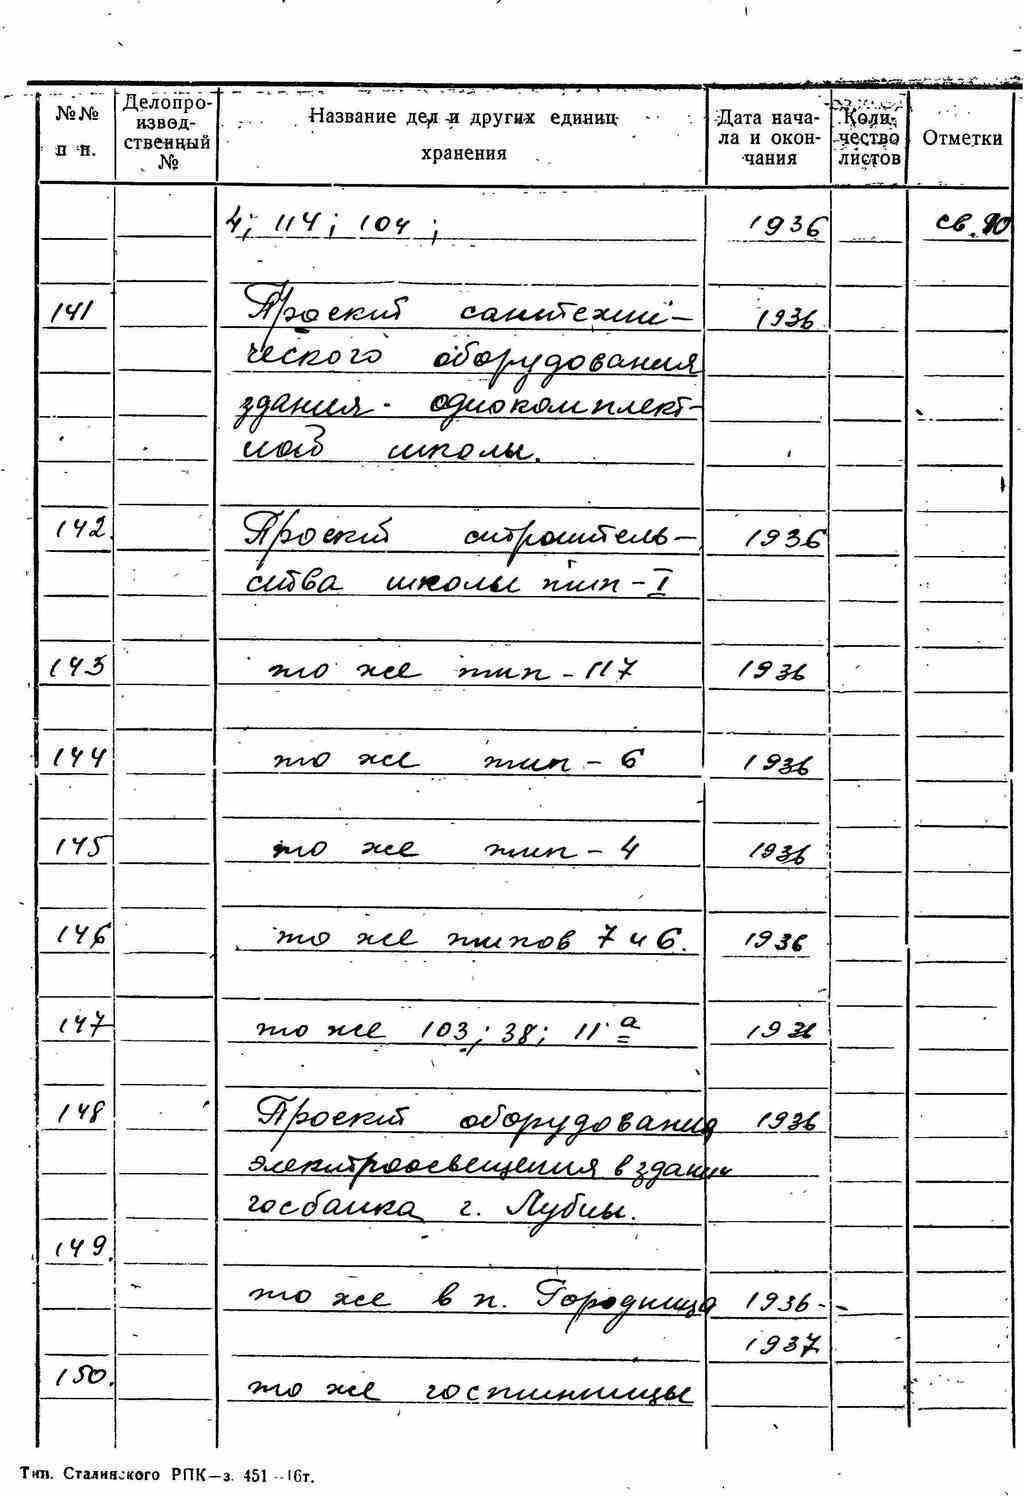 №№ п п. Делопроизводственный № Название дел и других единиц хранения Дата начала и окончания Количество листов Отметки
4; 114; 104; 1936 св.
141 Проект сантехни- 1936
ческого оборудования
здания одкокомплект-
ной школы.
142. Проект строитель- 1936
ства школы тип-I
143 то же тип-117 1936
144 то же тип-6 1936
145 то же тип-4 1936
146 то же типов 7 и 6. 1936
147 то же 103; 38; 11а 1936
148 Проект оборудования 1936
электроосвещения в здании
госбанка г. Лубны.
149.
то же в п. Городница 1936-
1937
150. то же гостиницы
Тип. Сталинского РПК—з. 451—16т.